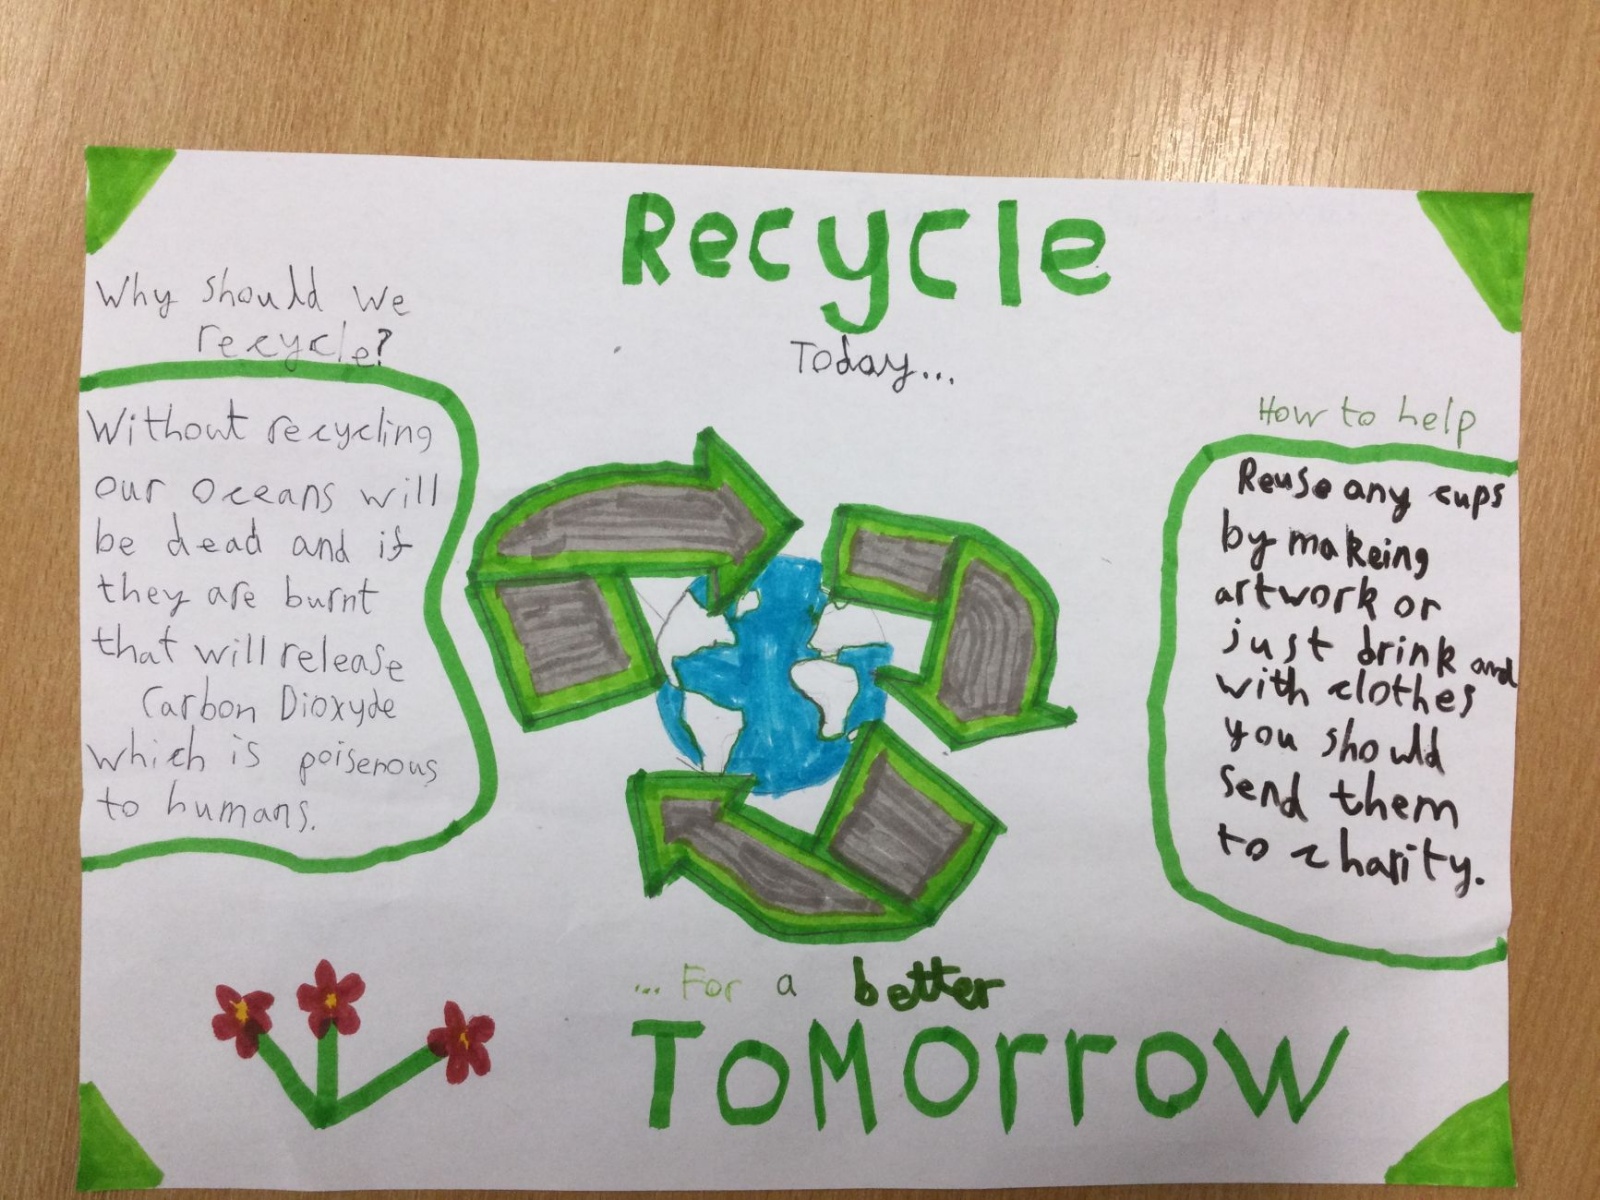 Recycle
Today...
Why should we
recycle?
Without recycling
our oceans will
be dead and if
they are burnt
that will release
Carbon Dioxyde
which is poisenous
to humans.
How to help
Reuse any cups
by makeing
artwork or
just drink and
with clothes
you should
send them
to charity.
... For a better
TOMORROW